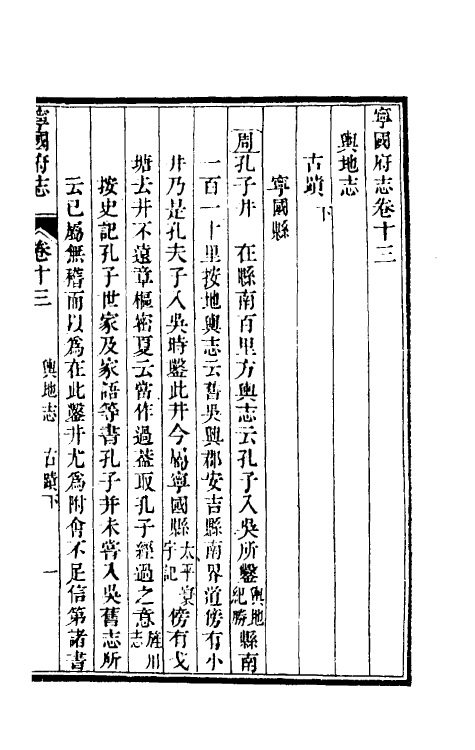 寧國府志卷十三
輿地志
古蹟下
寧國縣
周孔子井　在縣南百里方輿志云孔子入吳所鑿輿地紀勝縣南
一百一十里按地輿志云舊吳興郡安吉縣南界道傍有小
井乃是孔夫子入吳時鑿此井今屬寧國縣太平寰宇記傍有戈
塘去井不遠章樞密夏云當作過蓋取孔子經過之意旌川志
按史記孔子世家及家語等書孔子并未嘗入吳舊志所
云已屬無稽而以為在此鑿井尤為附會不足信第諸書
寧國府志　卷十三　輿地志　古蹟下　一